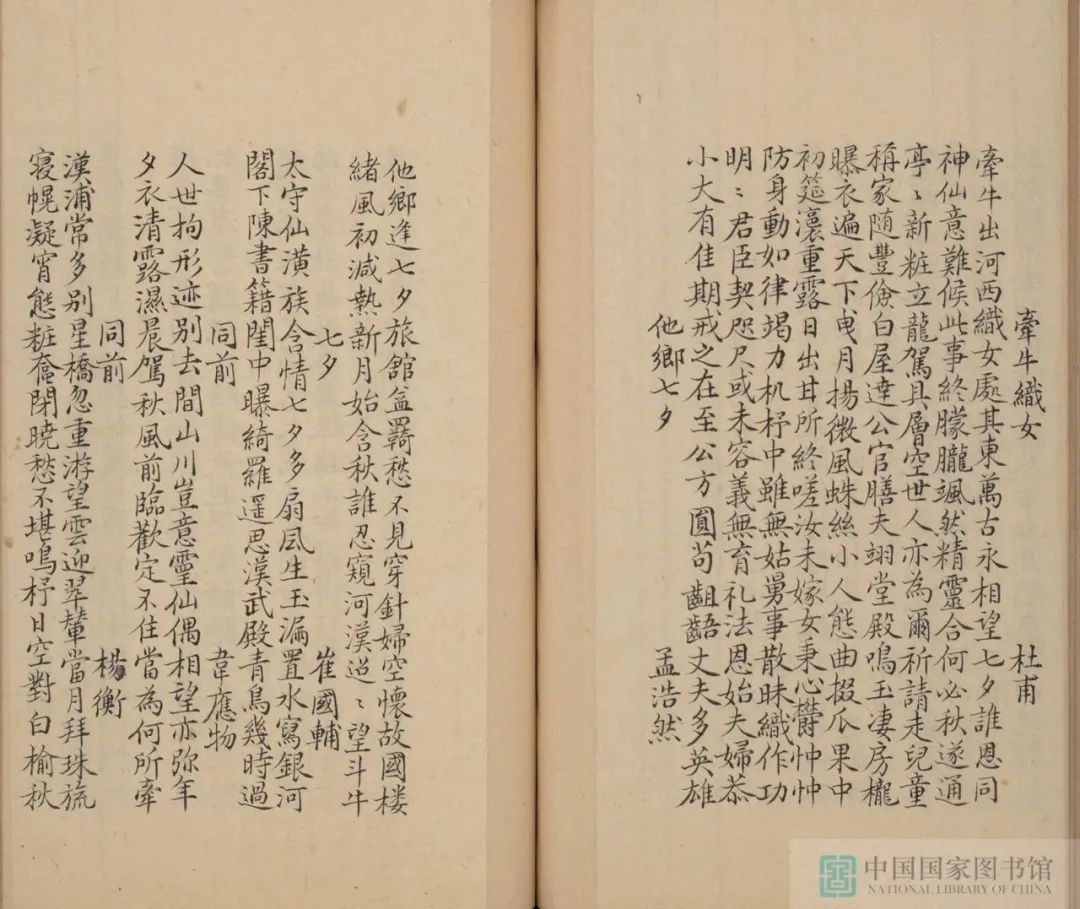 牽牛織女 杜甫
牽牛出河西織女處其東萬古永相望七夕誰恩同
神仙意難候此事終朦朧颯然精靈合何必秋遂通
亭〻新粧立龍駕具層空世人亦為爾祈請走兒童
稱家隨豐儉白屋達公官膳夫翊堂殿鳴玉凄房櫳
曝衣遍天下曵月揚微風蛛絲小人態曲掇瓜果中
初筵瀼重露日出甘所終嗟汝未嫁女秉心欝忡忡
防身動如律竭力机杼中雖無姑舅事散昧織作功
明〻君臣契咫尺或未容義無育礼法恩始夫婦恭
小大有佳期戒之在至公方圓苟齟齬丈夫多英雄
他鄉七夕 孟浩然
他鄉逢七夕旅館益羇愁不見穿針婦空懷故國楼
緒風初減熱新月始含秋誰忍窺河漢迢〻望斗牛
七夕 崔國輔
太守仙潢族含情七夕多扇風生玉漏置水寫銀河
閣下陳書籍閨中曝綺羅遥思漢武殿青鳥幾時過
同前 韋應物
人世拘形迹别去間山川豈意靈仙偶相望亦弥年
夕衣清露濕晨駕秋風前臨歡定不住當為何所牽
同前 楊衡
漢浦常多别星橋忽重游望雲迎翠輦當月拜珠旒
寝幌凝宵態粧奩閉曉愁不堪鳴杼日空對白榆秋
中国国家图书馆
NATIONAL LIBRARY OF CHINA